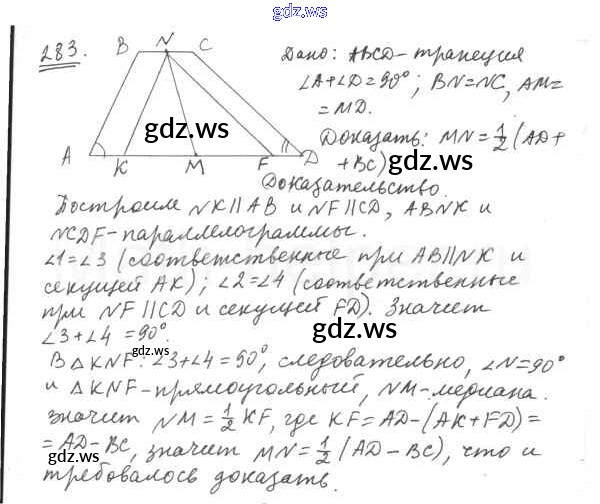 gdz.ws
283.
B N C
A K M F D
Дано: ABCD-трапеция
∠A+∠D=90°; BN=NC, AM=
=MD.
Доказать: MN=½(AD+
+BC)
Доказательство.
Построим NK∥AB и NF∥CD, ABNK и
NCDF-параллелограммы.
∠1=∠3 (соответственные при AB∥NK и
секущей AK); ∠2=∠4 (соответственные
при NF∥CD и секущей FD). Значит
∠3+∠4=90°.
В △KNF: ∠3+∠4=90°, следовательно, ∠N=90°
и △KNF-прямоугольный, NM-медиана.
Значит NM=½KF, где KF=AD-(AK+FD)=
=AD-BC, значит MN=½(AD-BC), что и
требовалось доказать.
gdz.ws
gdz.ws
gdz.ws
gdz.ws
gdz.ws
gdz.ws